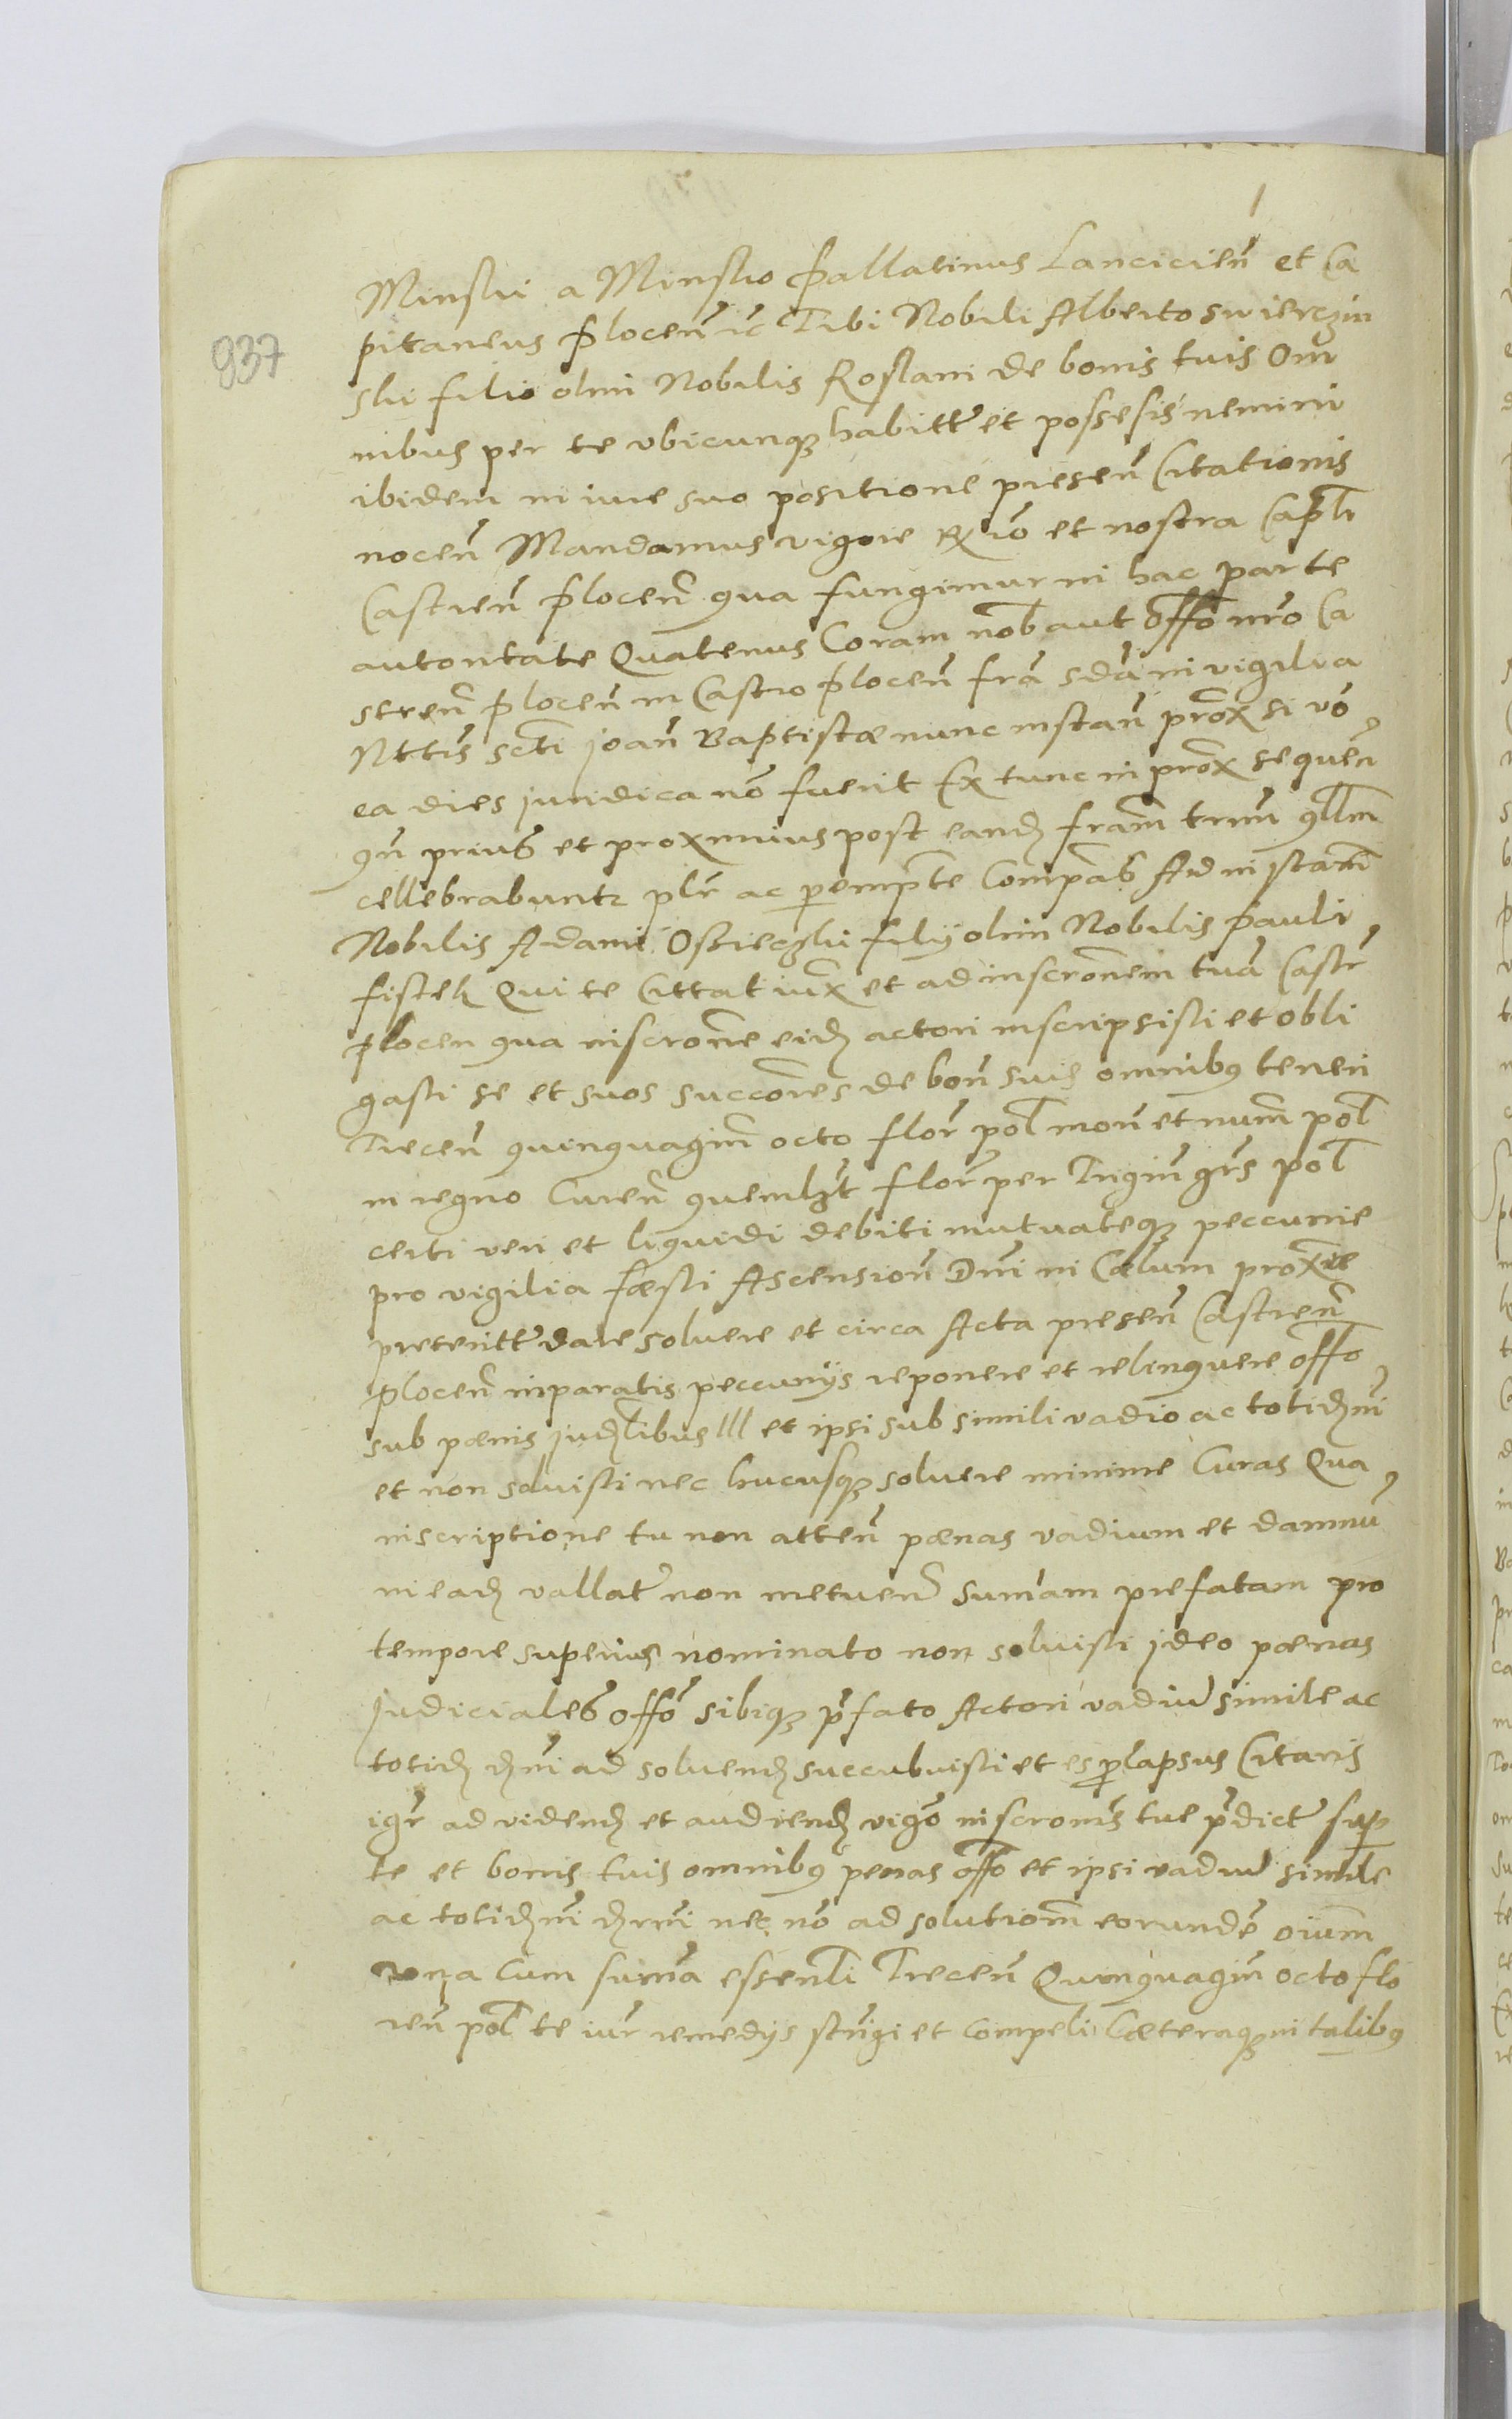 Minski a Minsko Pallatinus Lancicien̄ et Ca
pitaneus Plocen̄ ic̄ Tibi Nobili Alberto Swierczin
937
ski filio olim Nobilis Roslani de bonis tuis Om
nibus per te ubicunq habitt̄ et possesis nemini
ibidem in iure suo positione presen̄ Citationis
nocen̄ Mandamus vigore Rx io et nostra Caplī
Castren̄ Plocen̄ qua fungimur in hac parte
autoritate Quatenus Coram nob̄ aut Offō nrō Ca
stren̄ Plocen̄ in Castro Plocen̄ frā sdā in vigilia
Nttīs Sctī Joan̄ Baptistæ nunc instan̄ prox̄ si vō
ea dies juridica nō fuerit Ex tunc in prox̄ sequen̄
qn̄ prius et proximius post eandꝫ fram̄ trmī qllm̄
cellebrabuntr plr̄ ac perempt̄e Compās Ad instam̄
Nobilis Adami Osieczki filij olim Nobilis Pauli
fistek Qui te Cittat iux̄ et ad inscronem̄ tuā Castr̄
Plocen qua inscrone eidꝫ actori inscripsisti et obli
gasti se et suos succores̄ de bon̄ suis omnibꝯ teneri
Trecen̄ quinquagin̄ octo flor̄ pol̄ mon̄ et num̄ pol̄
in regno Curen̄ quemlꝫt flor̄ per Trigin̄ grs̄ pol̄
certi veri et liquidi debiti mutuateqꝫ peccunie
pro vigilia fæsti Ascension̄ Dnī in Cælum prox̄ie
preteritt̄ dare soluere et circa Acta presen̄ Castren̄
Plocen̄ inparatis peccunijs reponere et relinquere offō
sub pænis judꝫlibus lll et ipsi sub simili vadio ac totidꝫ ni
et non solvisti nec hucusqꝫ soluere minime Curas Qua
inscriptione tu non atten̄ pænas vadium et damnū
in eadꝫ vallat̄ non metuen̄ sumam prefatam pro
tempore superius nominato non soluisti ideo pænas
Judiciales offō sibiqꝫ p̄fato Actori vadiū simile ac
totidꝫ dꝫni ad soluendꝫ succubuisti et es p̄lapsus Citaris
igr̄ ad videndꝫ et audiendꝫ vigō inscronis̄ tue p̄dict̄ sup
te et bonis tuis omnibꝯ penas offō et ipsi vadiū simile
ac totidꝫni dꝫmī nec nō ad solutiom̄ eorundē oium̄
una Cum suma essentlī Trecen̄ Quinquagin̄ octo flo
ren̄ pol̄ te iur̄ remedijs stringi et Compeli Cæteraqꝫ in talibꝯ